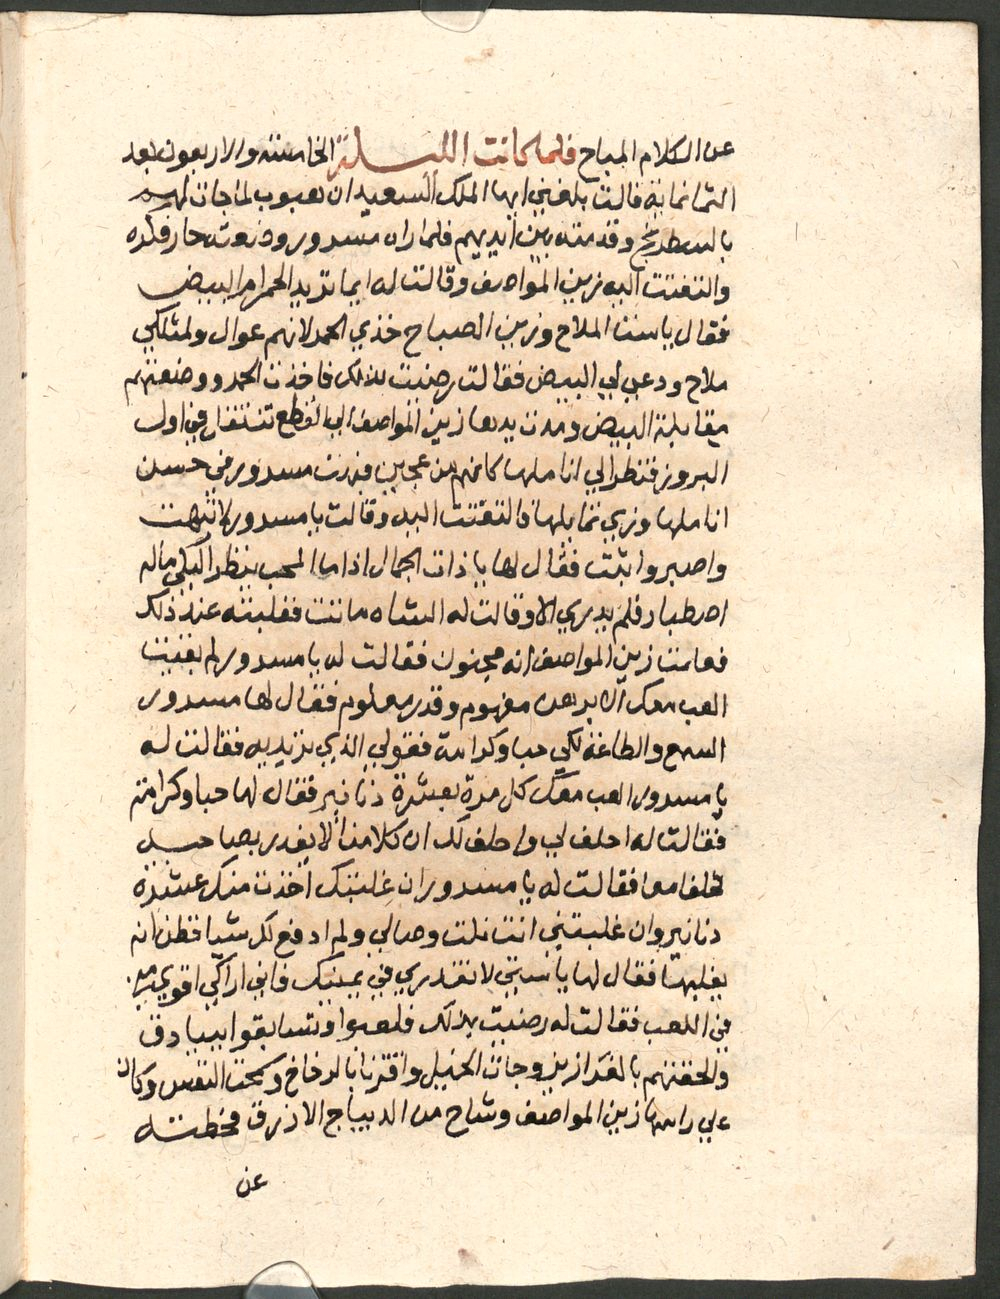 عن الكلام المباح فلما كانت الليلة الخامسة والاربعون بعد
الثمانماية قالت بلغني ايها الملك السعيد ان هبوب لما جات لهم
بالشطرنج وقدمته بين ايديهم فلما راه مسرور وجوته حار فكره
والتفتت اليه زين المواصف وقالت له ايما تريد الحمر ام البيض
فقال ياست الملاح وزين الصباح خذي الحمر لانهم عوال ولمثلكي
ملاح ودعي لي البيض فقالت رضيت بذلك فاخذت الحمر ووضعتهم
مقابلة البيض ومدت يدها زين المواصف الي القطع تنتقل في اول
البروز فنظر الي اناملها كانهم من عجين فبهت مسرور في حسن
اناملها وزي شمايلها فالتفتت اليه وقالت يا مسرور لا تبهت
واصبر واثبت فقال لها يا ذات الجمال اذا ما المحب ينظر اليكي ماله
اصطبار فلم يدري الا وقالت له الشاه ماتت فغلبته عند ذلك
فعلمت زين المواصف انه مجنون فقالت له يا مسرور لم بقيت
العب معك الا برهن مفهوم وقدر معلوم فقال لها مسرور
السمع والطاعة لكي حبا وكرامة فقولي الذي تريديه فقالت له
يا مسرور العب معك كل مرة بعشرة دنانير فقال لها حبا وكرامة
فقالت له احلف لي واحلف لك ان كلا منا لا يغدر بصاحبه
فحلفا معا فقالت له يا مسرور ان غلبتك اخذت منك عشرة
دنانير وان غلبتني انت نلت وصالي ولم ادفع لك شيا فظن انه
يغلبها فقال لها يا ستي لا تغدري في يمينك فاني اراكي اقوي مني
في اللعب فقالت له رضيت بذلك فلعبوا وتسابقوا بيبادق
والحقتهم بالفرازين وجات الخيل واقترنا بالرخاخ وسمحت النفس وكان
علي راسها زين المواصف وشاح من الديباج الازرق فحطته
عن